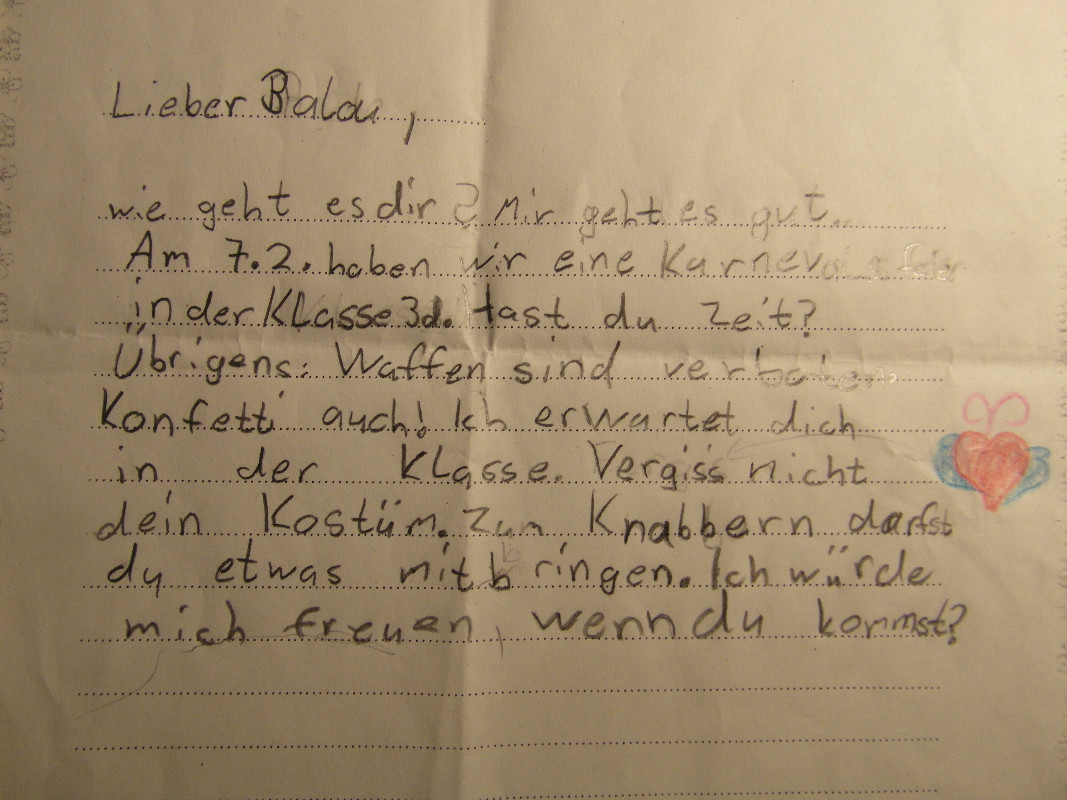 Lieber Balou,
wie geht es dir? Mir geht es gut.
Am 7.2. haben wir eine Karnevalsfeier
in der Klasse 3d. Hast du Zeit?
Übrigens: Waffen sind verboten.
Konfetti auch! Ich erwartet dich
in der Klasse. Vergiss nicht
dein Kostüm. Zum Knabbern darfst
du etwas mitbringen. Ich würde
mich freuen, wenn du kommst?